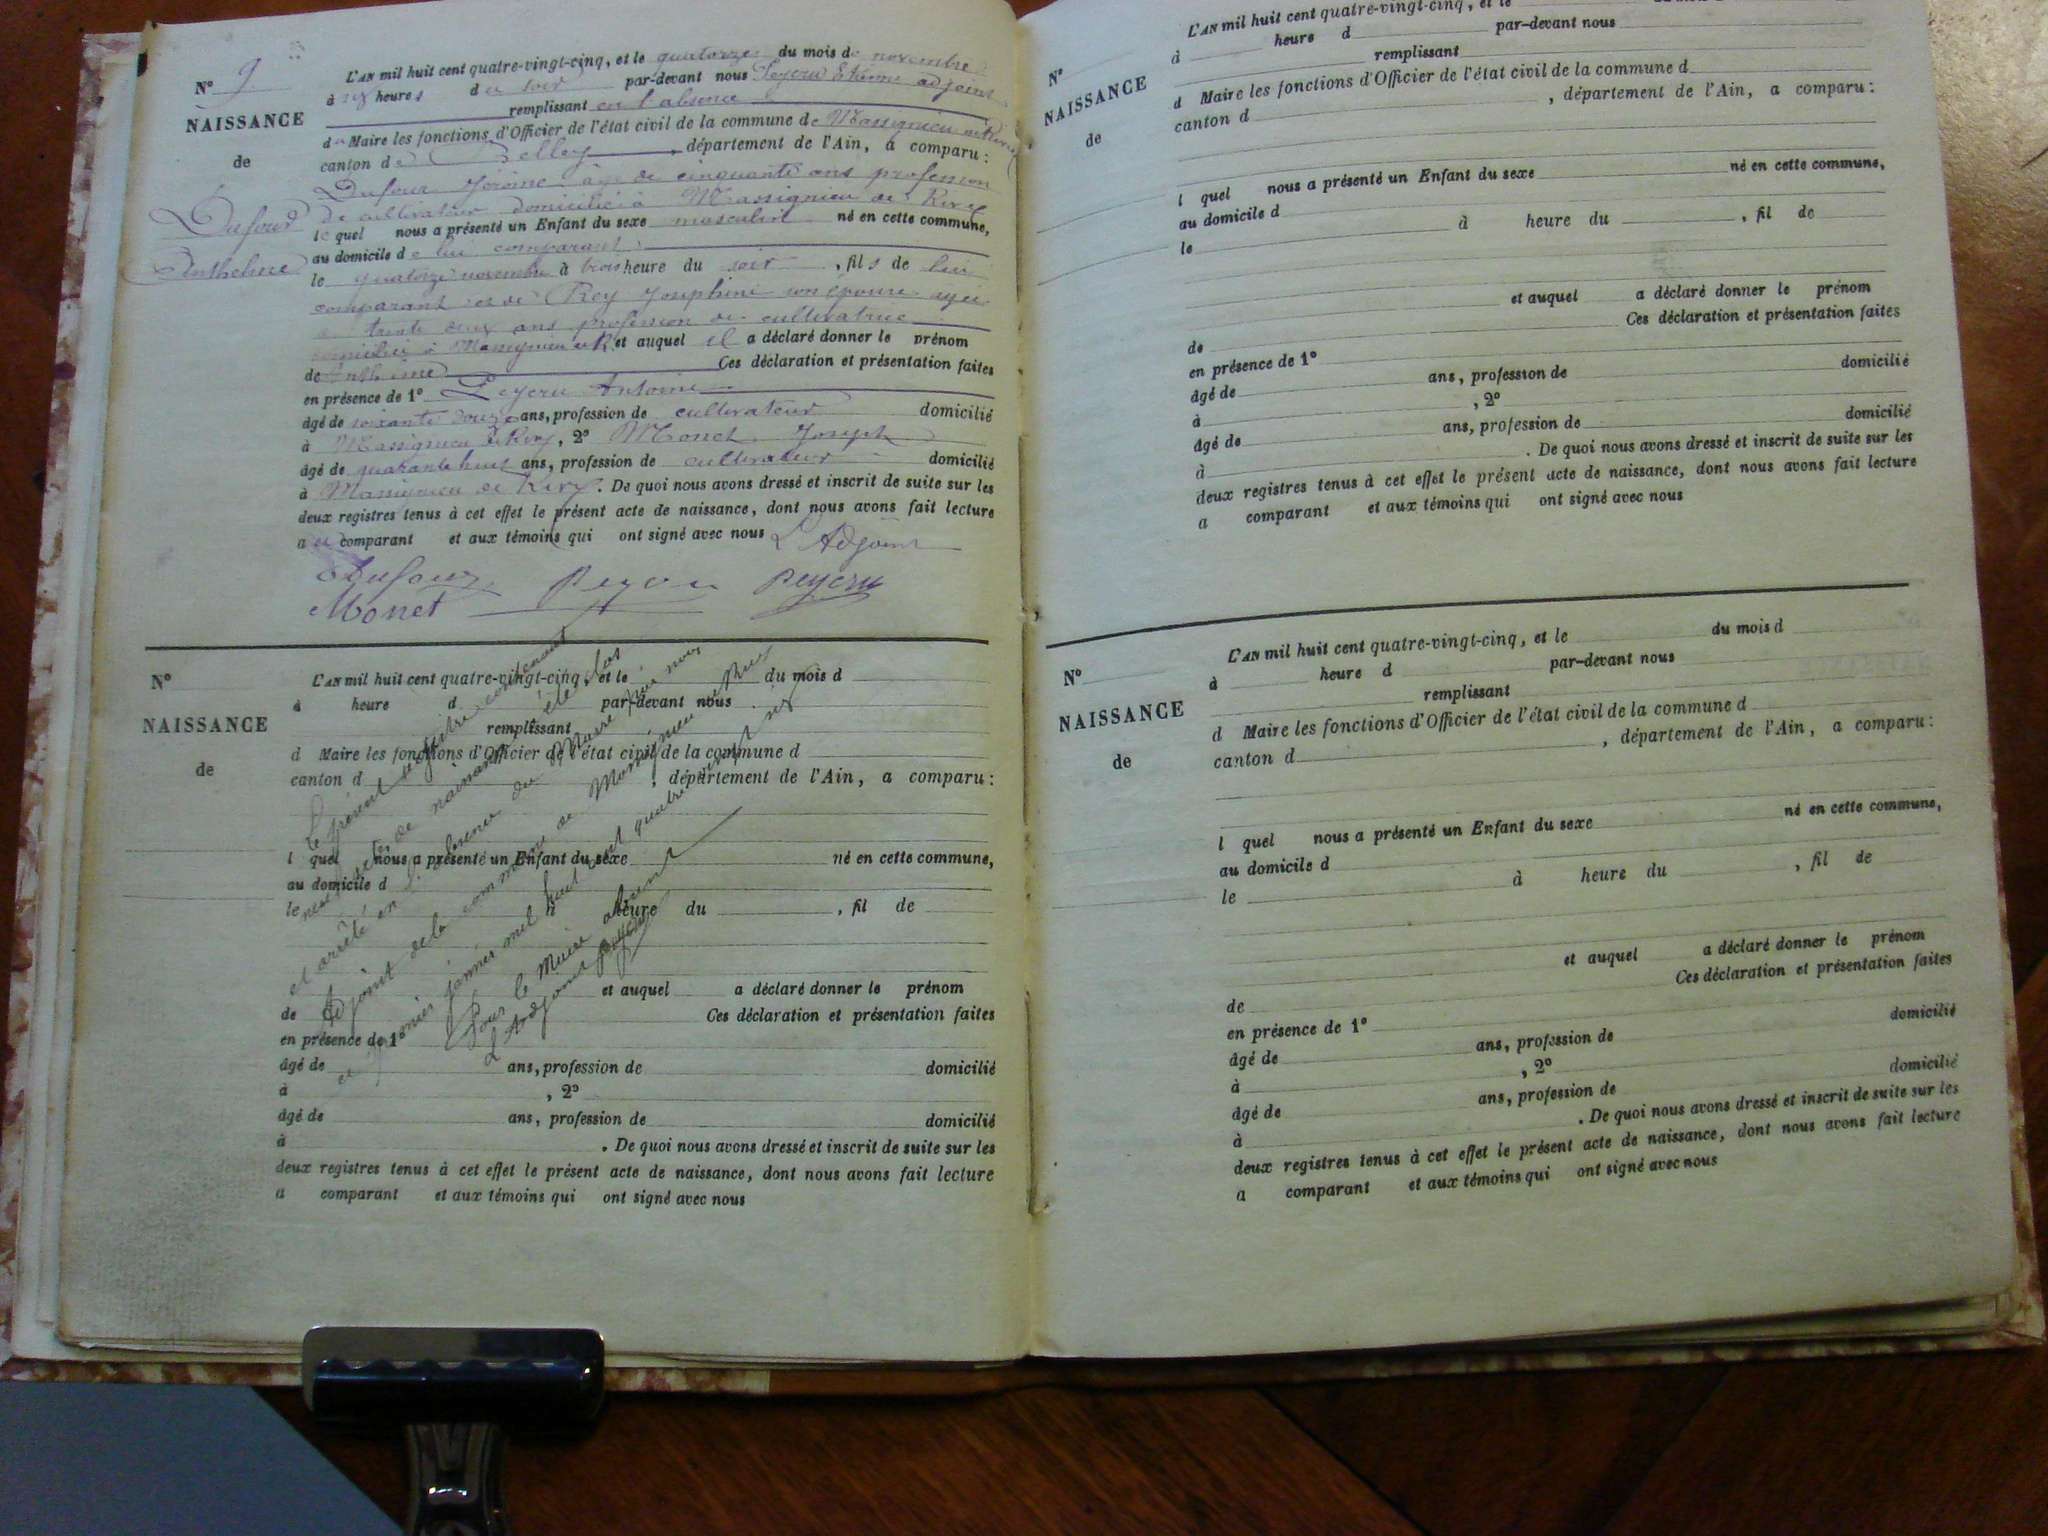 N° 9
NAISSANCE
de
Dufour
Anthelme
L'AN mil huit cent quatre-vingt-cinq, et le quatorze du mois de novembre
à six heures du soir par-devant nous Peyeru Etienne adjoint
remplissant en l'absence
du Maire les fonctions d'Officier de l'état civil de la commune de Massignieu de Rives
canton de Belley, département de l'Ain, a comparu :
Dufour Jérôme âgé de cinquante ans profession
de cultivateur domicilié à Massignieu de Rives
lequel nous a présenté un Enfant du sexe masculin né en cette commune,
au domicile de lui comparant
le quatorze novembre à trois heure du soir, fils de lui
comparant et de Rey Josephine son épouse agée
trente deux ans profession de cultivatrice
domicilié à Massignieu de R. et auquel il a déclaré donner le prénom
de Anthelme Ces déclaration et présentation faites
en présence de 1° Peyeru Antoine
âgé de soixante douze ans, profession de cultivateur domicilié
à Massignieu de Rives, 2° Monet Joseph
âgé de quarante huit ans, profession de cultivateur domicilié
à Massignieu de Rives. De quoi nous avons dressé et inscrit de suite sur les
deux registres tenus à cet effet le présent acte de naissance, dont nous avons fait lecture
au comparant et aux témoins qui ont signé avec nous L'Adjoint
Dufour Peyeru Peyeru
Monet
N°
NAISSANCE
de
L'AN mil huit cent quatre-vingt-cinq, et le du mois d
à heure d par-devant nous
remplissant
d Maire les fonctions d'Officier de l'état civil de la commune d
canton d , département de l'Ain, a comparu :
l quel nous a présenté un Enfant du sexe né en cette commune,
au domicile d
le à heure du , fil de
et auquel a déclaré donner le prénom
de Ces déclaration et présentation faites
en présence de 1°
âgé de ans, profession de domicilié
à , 2°
âgé de ans, profession de domicilié
à . De quoi nous avons dressé et inscrit de suite sur les
deux registres tenus à cet effet le présent acte de naissance, dont nous avons fait lecture
a comparant et aux témoins qui ont signé avec nous
Le présent registre contenant
neuf actes de naissance a été clos
et arrêté en l'absence du Maire par nous
Adjoint de la commune de Massignieu de Rives
ce premier janvier mil huit cent quatre vingt six
Pour le Maire absent
L'Adjoint Peyeru
N°
NAISSANCE
de
L'AN mil huit cent quatre-vingt-cinq, et le
à heure d par-devant nous
remplissant
d Maire les fonctions d'Officier de l'état civil de la commune d
canton d , département de l'Ain, a comparu :
l quel nous a présenté un Enfant du sexe né en cette commune,
au domicile d
le à heure du , fil de
et auquel a déclaré donner le prénom
de Ces déclaration et présentation faites
en présence de 1°
âgé de ans, profession de domicilié
à , 2°
âgé de ans, profession de domicilié
à . De quoi nous avons dressé et inscrit de suite sur les
deux registres tenus à cet effet le présent acte de naissance, dont nous avons fait lecture
a comparant et aux témoins qui ont signé avec nous
N°
NAISSANCE
de
L'AN mil huit cent quatre-vingt-cinq, et le du mois d
à heure d par-devant nous
remplissant
d Maire les fonctions d'Officier de l'état civil de la commune d
canton d , département de l'Ain, a comparu :
l quel nous a présenté un Enfant du sexe né en cette commune,
au domicile d
le à heure du , fil de
et auquel a déclaré donner le prénom
de Ces déclaration et présentation faites
en présence de 1°
âgé de ans, profession de domicilié
à , 2°
âgé de ans, profession de domicilié
à . De quoi nous avons dressé et inscrit de suite sur les
deux registres tenus à cet effet le présent acte de naissance, dont nous avons fait lecture
a comparant et aux témoins qui ont signé avec nous